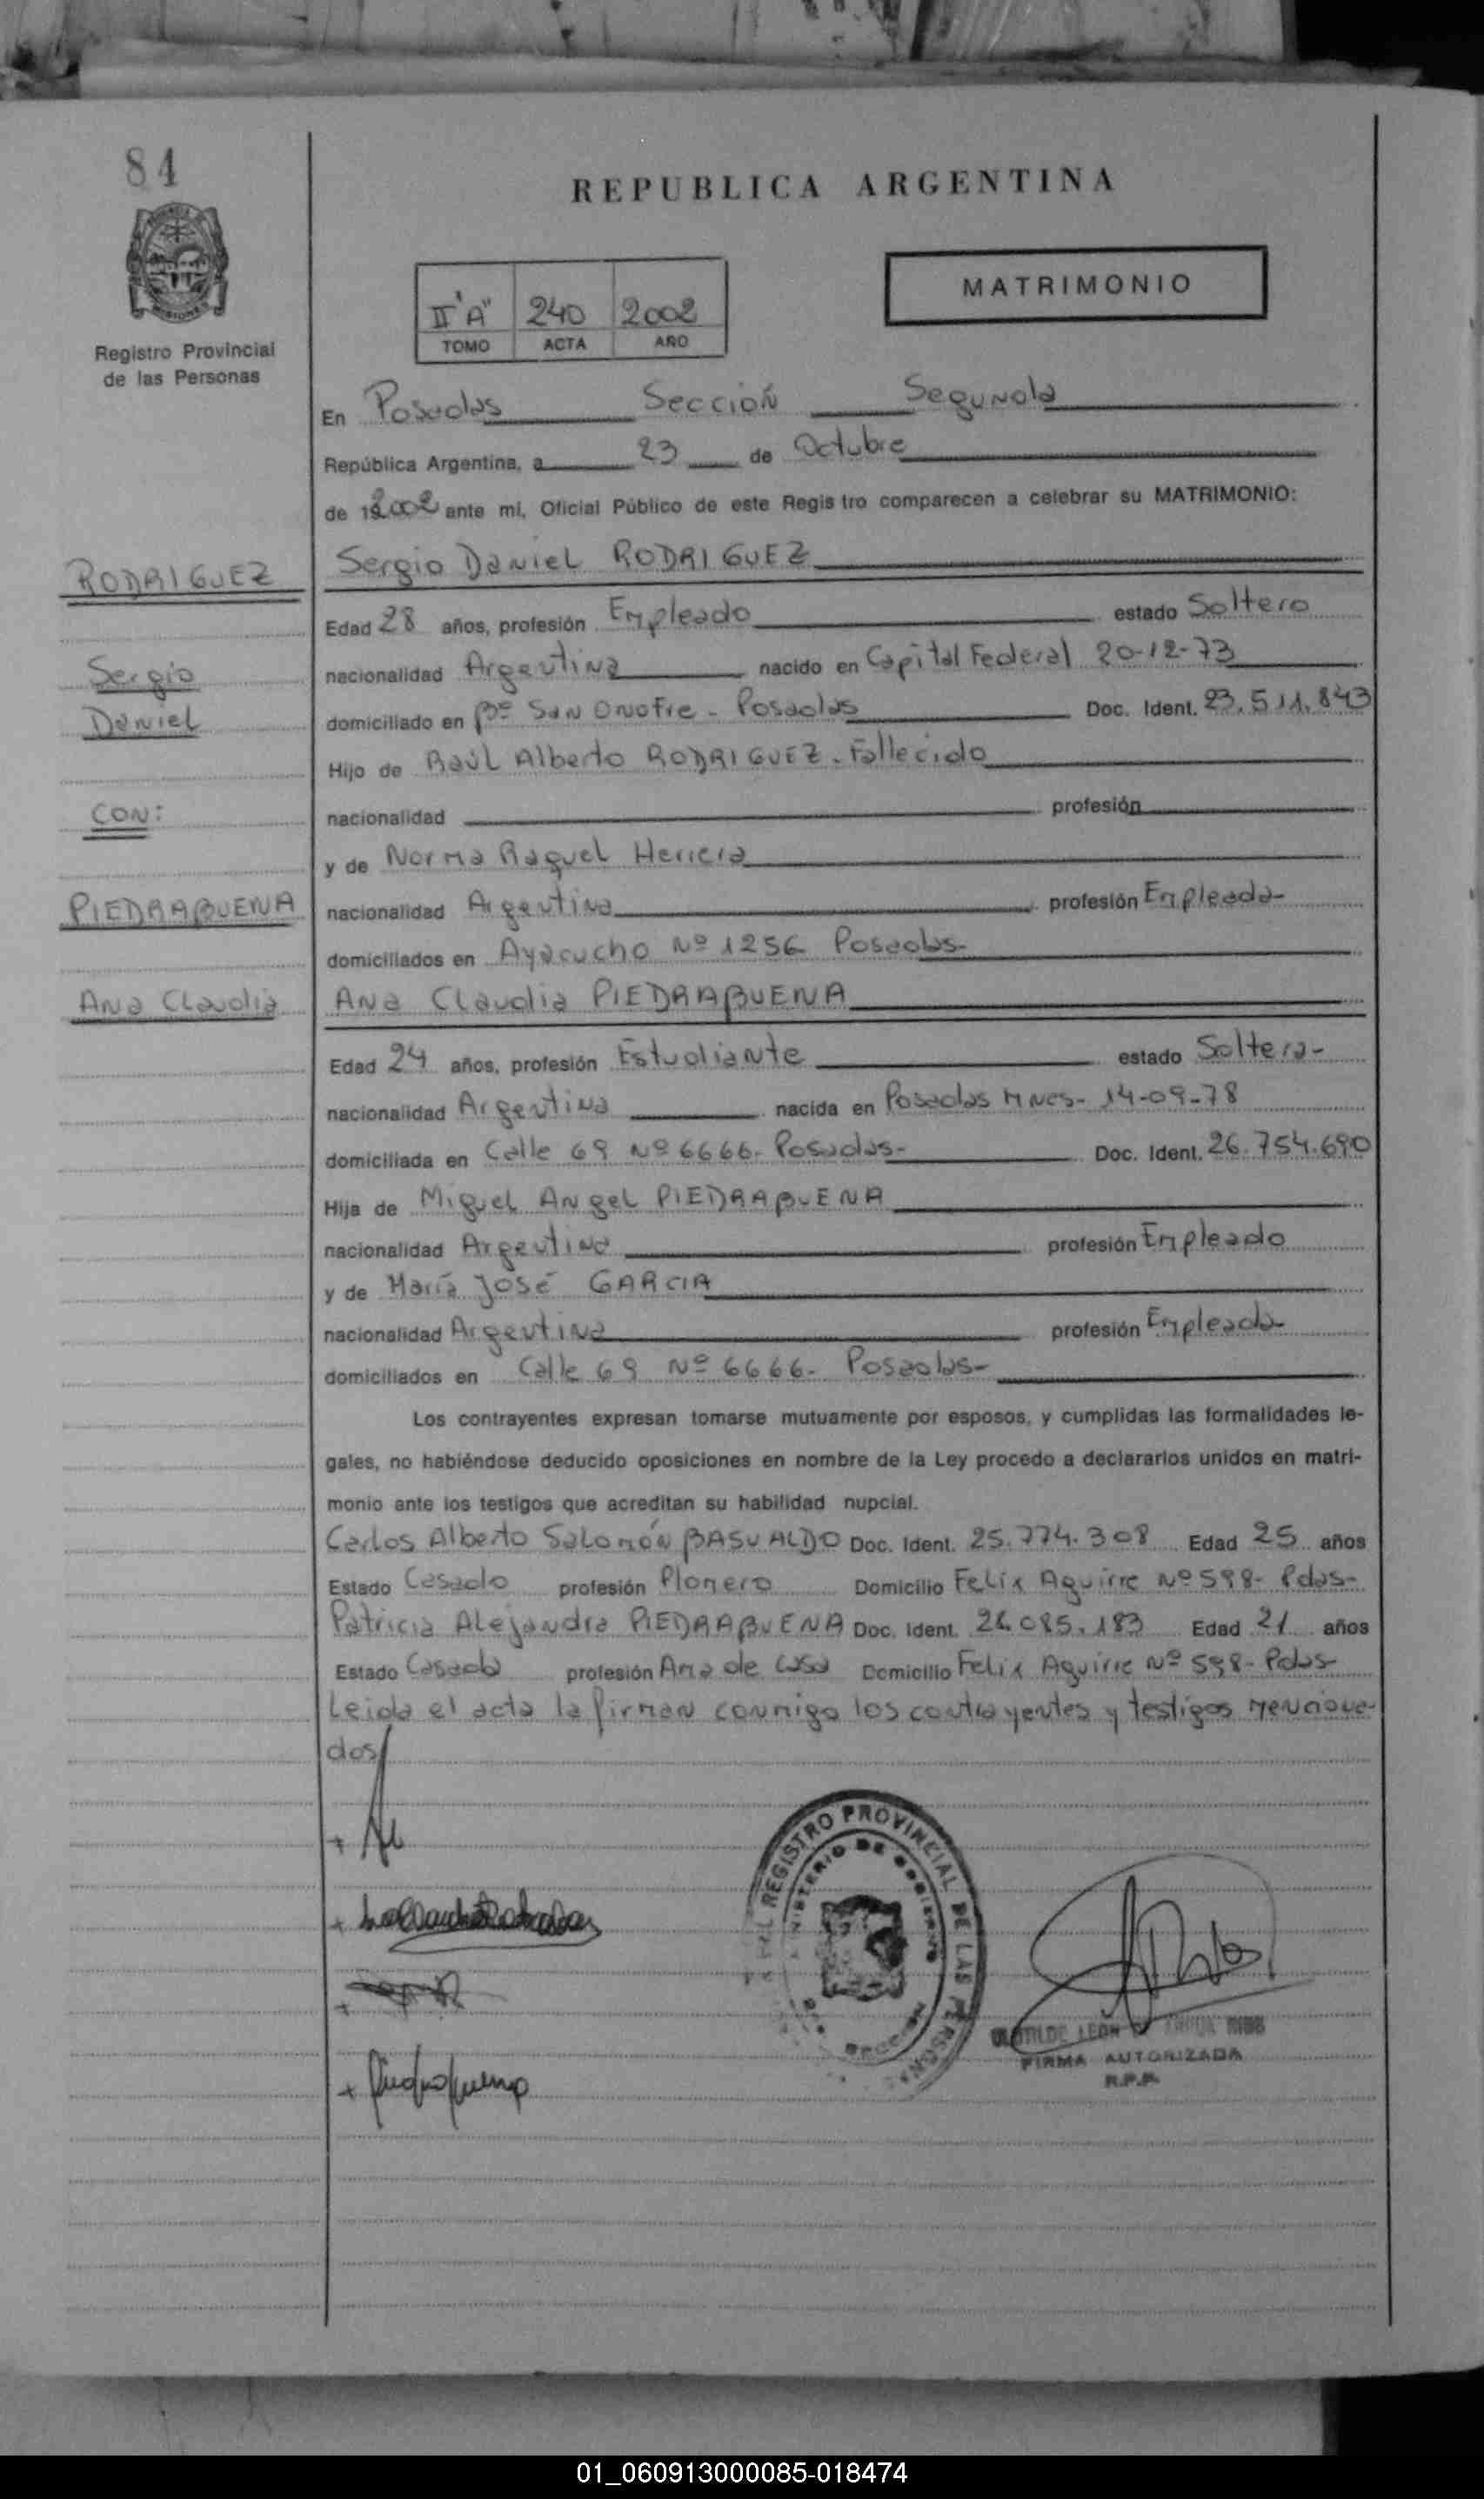 84
REPUBLICA ARGENTINA
MATRIMONIO
II "A" 240 2002
TOMO ACTA AÑO
Registro Provincial
de las Personas
En Posadas Sección Segunda
República Argentina, a 23 de Octubre
de 2002 ante mi, Oficial Público de este Registro comparecen a celebrar su MATRIMONIO:
RODRIGUEZ
Sergio Daniel RODRIGUEZ
Edad 28 años, profesión Empleado estado Soltero
Sergio
nacionalidad Argentina nacido en Capital Federal 20-12-73
Daniel
domiciliado en Bº San Onofre - Posadas Doc. Ident. 23.511.843
Hijo de Raúl Alberto RODRIGUEZ - Fallecido
CON:
nacionalidad profesión
y de Norma Raquel Herrera
PIEDRABUENA
nacionalidad Argentina profesión Empleada-
domiciliados en Ayacucho Nº 1256 Posadas-
Ana Claudia
Ana Claudia PIEDRABUENA
Edad 24 años, profesión Estudiante estado Soltera-
nacionalidad Argentina nacida en Posadas Mnes- 14-09-78
domiciliada en Calle 69 Nº 6666- Posadas- Doc. Ident. 26.754.690
Hija de Miguel Angel PIEDRABUENA
nacionalidad Argentina profesión Empleado
y de María José GARCIA
nacionalidad Argentina profesión Empleada-
domiciliados en Calle 69 Nº 6666- Posadas-
Los contrayentes expresan tomarse mutuamente por esposos, y cumplidas las formalidades le-
gales, no habiéndose deducido oposiciones en nombre de la Ley procedo a declararlos unidos en matri-
monio ante los testigos que acreditan su habilidad nupcial.
Carlos Alberto Salomón BASUALDO Doc. Ident. 25.774.308 Edad 25 años
Estado Casado profesión Plomero Domicilio Felix Aguirre Nº 598- Pdas-
Patricia Alejandra PIEDRABUENA Doc. Ident. 26.085.183 Edad 21 años
Estado Casada profesión Ama de casa Domicilio Felix Aguirre Nº 598- Pdas-
Leida el acta la firman conmigo los contrayentes y testigos menciona-
dos
REGISTRO PROVINCIAL DE LAS PERSONAS
MINISTERIO DE GOBIERNO
Piedrabuena
CLOTILDE LEON
FIRMA AUTORIZADA
R.P.P.
01_060913000085-018474